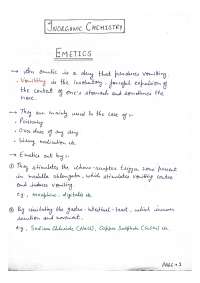 INORGANIC CHEMISTRY
EMETICS
→ An emetic is a drug that produces vomiting.
• Vomiting is the involuntary, forceful expulsion of
the content of one's stomach and sometimes the
nose.
→ They are mainly used in the case of :-
• Poisoning
• Over dose of any drug
• Wrong medication etc.
→ Emetics act by :-
① They stimulates the chemo-receptor trigger zone present
in medulla oblongata, which stimulates vomiting centre
and induces vomiting
e.g., morphine, digitalis etc.
② By irritating the gastro-intestinal-tract, which increases
secretion and movement.
e.g., Sodium Chloride (NaCl), Copper Sulphate (CuSO4) etc.
PAGE - 1